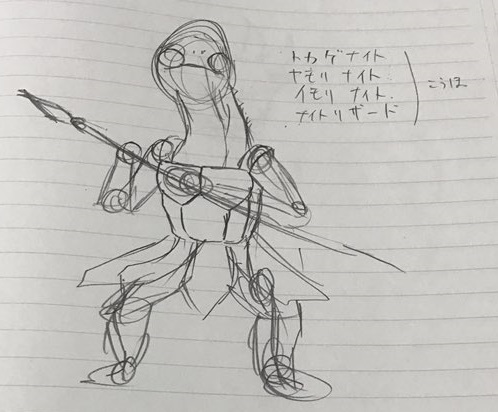 トカゲナイト
ヤモリ ナイト
イモリ ナイト
ナイトリザード
こうほ